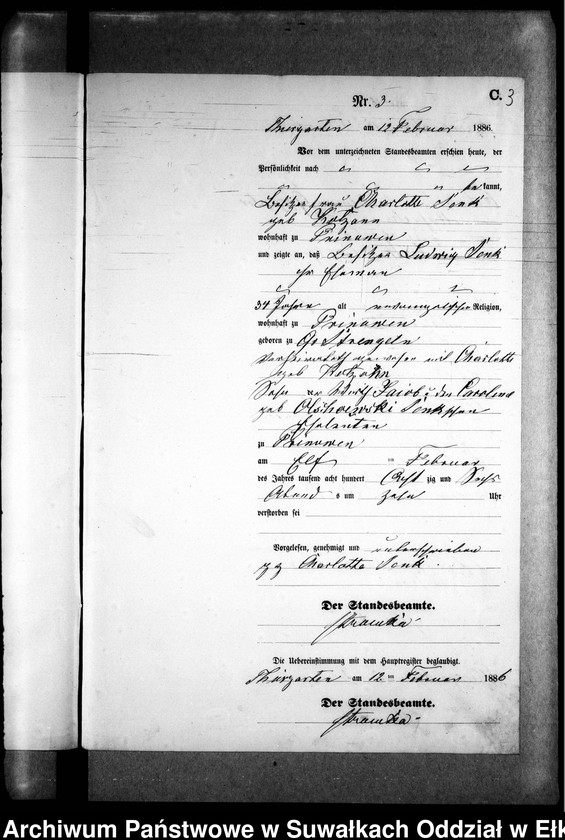 C. 3
Nr. 3.
Thiergarten am 12 Februar 1886.
Vor dem unterzeichneten Standesbeamten erschien heute, der
Persönlichkeit nach
bekannt,
Besitzerfrau Charlotte Senk
geb
wohnhaft zu Prinowen
und zeigte an, daß Besitzer Ludwig Senk
ihr Ehemann
34 Jahre alt evangelischer Religion,
wohnhaft zu Prinowen
geboren zu Gr Strengeln
verheirathet gewesen mit Charlotte
geb
Sohn der Wirth Jacob u der Caroline
geb Olschewski Senkschen
Eheleuten
zu Prinowen
am Elf ten Februar
des Jahres tausend acht hundert Acht zig und Sechs
Abend s um zehn Uhr
verstorben sei
Vorgelesen, genehmigt und unterschrieben
gez Charlotte Senk.
Der Standesbeamte.
Die Uebereinstimmung mit dem Hauptregister beglaubigt.
Thiergarten am 12. ten Februar 1886
Der Standesbeamte.
Archiwum Państwowe w Suwałkach Oddział w Ełk